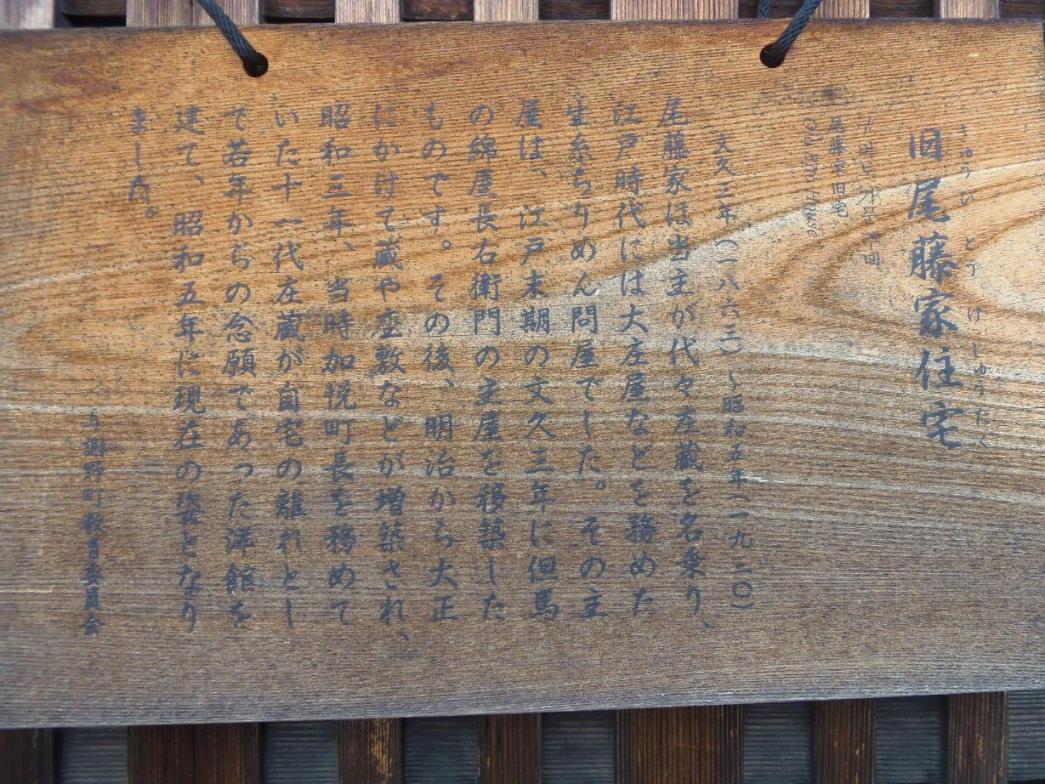 きゅう び とう け じゅうたく
旧 尾藤家住宅
尾藤家旧宅
Old Bito House
文久三年(一八六三)~昭和五年(一九三〇)
尾藤家は当主が代々庄蔵を名乗り、
江戸時代には大庄屋などを務めた
生糸ちりめん問屋でした。その主
屋は、江戸末期の文久三年に但馬
の綿屋長右衛門の主屋を移築した
ものです。その後、明治から大正
にかけて蔵や座敷などが増築され、
昭和三年、当時加悦町長を務めて
いた十一代庄蔵が自宅の離れとし
て若年からの念願であった洋館を
建て、昭和五年に現在の姿となり
ました。
与謝野町教育委員会